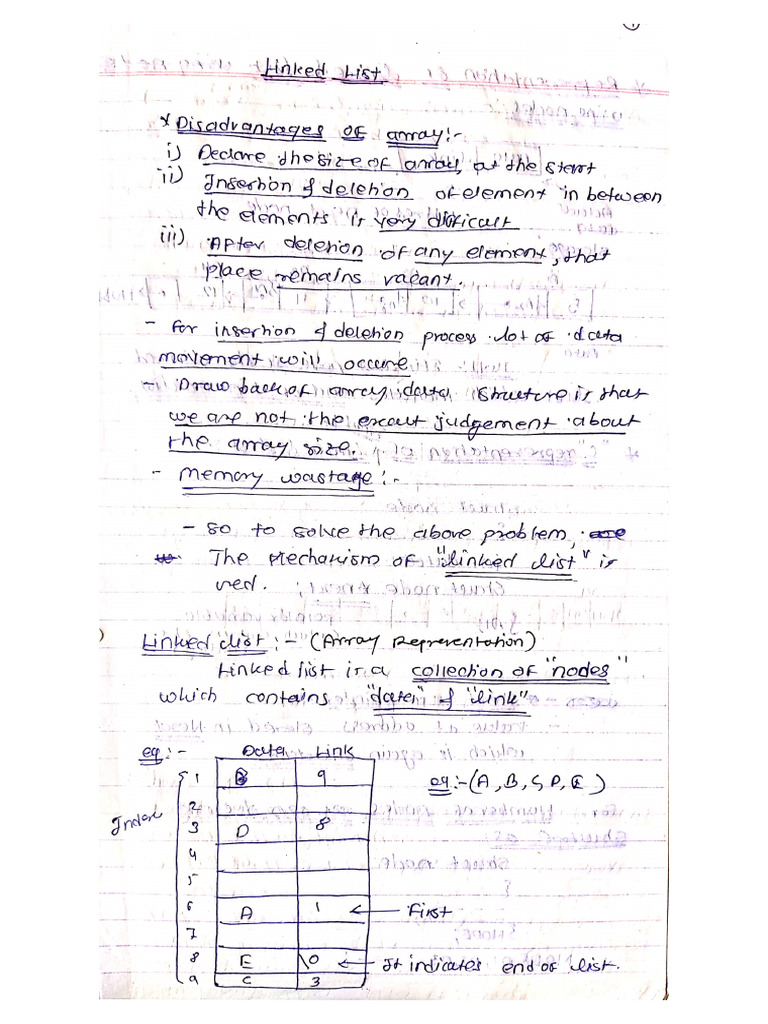 1
Linked List
* Disadvantages of array:-
i) Declare the size of array, at the start
ii) Insertion & deletion of element in between
the elements is very difficult
iii) After deletion of any element, that
place remains vacant.
- for insertion & deletion process lot of data
movement will occure
- Drawback of array data structure is that
we are not the exact judgement about
the array size.
- Memory wastage:-
- so to solve the above problem,
The Mechanism of "linked list" is
used.
Linked list:- (Array Representation)
Linked list is a collection of "nodes"
which contains "data" & "link"
eg:- Data Link
1 B 9 eg:- (A, B, C, D, E)
2
Index 3 D 8
4
5
6 A 1 ← First
7
8 E \0 ← It indicates end of list.
9 C 3